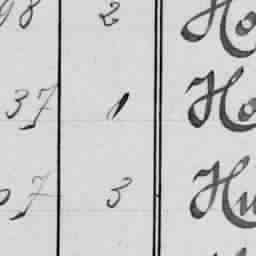 98 2 Ho
37 1 Ho
7 3 Hu